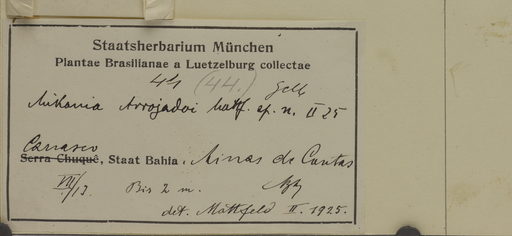 Staatsherbarium München
Plantae Brasilianae a Luetzelburg collectae
44 (44.) Gelb
Mikania Arrojadoi Mattf. sp. n. II 25
Carrasco
Serra Chuquê, Staat Bahia. Minas de Contas
VII/13. Bis 2 m.
det. Mattfeld II. 1925.